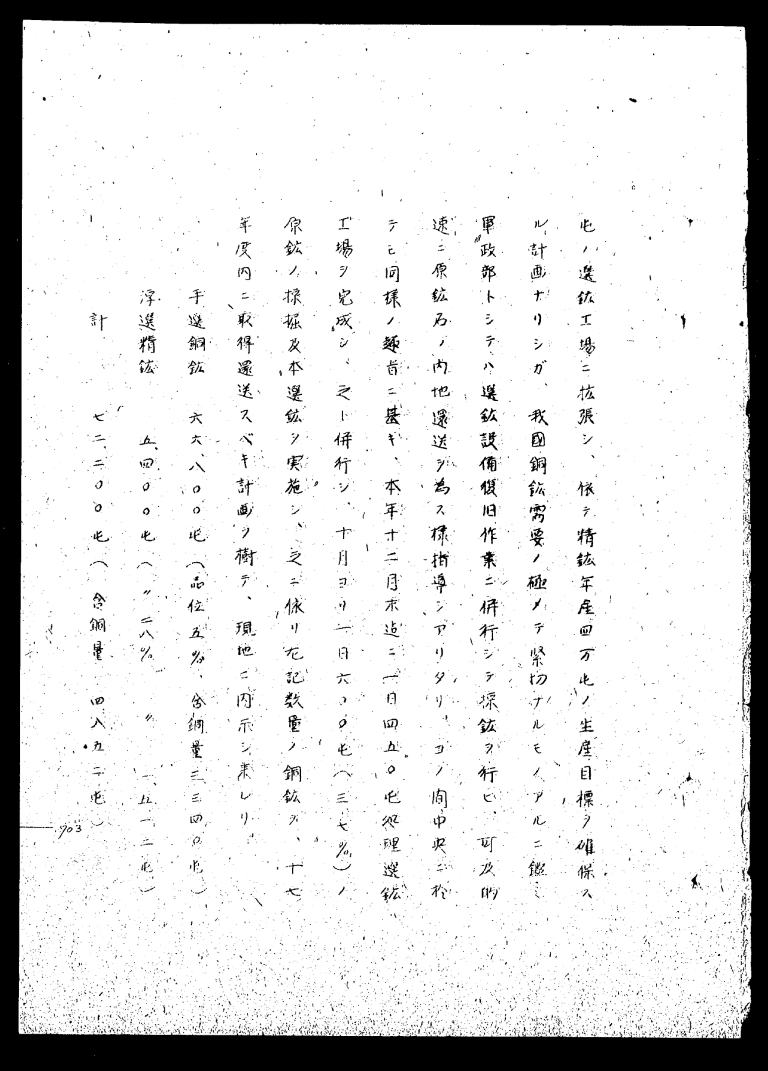 屯ノ選鉱工場ニ拡張シ、依テ精鉱年産四万屯ノ生産目標ヲ確保ス
ル計画ナリシガ、我國銅鉱需要ノ極メテ緊切ナルモノアルニ鑑ミ
軍政部トシテハ選鉱設備復旧作業ニ併行シテ採鉱ヲ行ヒ、可及的
速ニ原鉱石ノ内地還送ヲ為ス様指導シアリタリ、コノ間中央ニ於
テモ同様ノ趣旨ニ基キ、本年十二月末迄ニ一日四五〇屯処理選鉱
工場ヲ完成シ、之ト併行シ、十月ヨリ一日六〇〇屯(三七%)ノ
原鉱ノ採掘及本選鉱ヲ実施シ、之ニ依リ左記数量ノ銅鉱ヲ、十七
年度内ニ取得還送スベキ計画ヲ樹テ、現地ニ内示シ来レリ、
手選銅鉱 六六、八〇〇屯(品位五%、含銅量三三四〇屯)
浮選精鉱 五、四〇〇屯(〃二八% 〃 一、五一二屯)
計 七二、二〇〇屯(含銅量 四八五二屯)
903